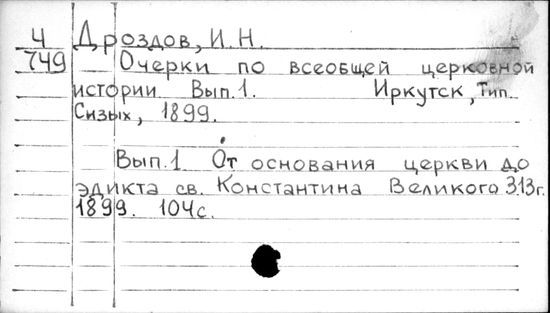 4 Дроздов, И.Н.
749 Очерки по всеобщей церковной
истории Вып.1. Иркутск, Тип.
Сизых, 1899.
Вып.1 От основания церкви до
эдикта св. Константина Великого 313г.
1899. 104с.